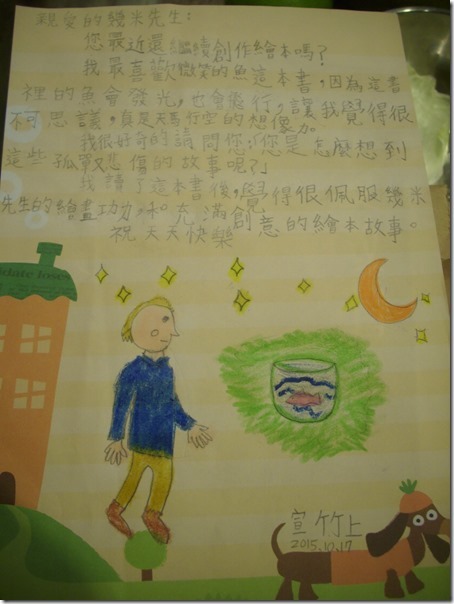 親愛的幾米先生：
您最近還繼續創作繪本嗎？
我最喜歡微笑的魚這本書，因為這書
裡的魚會發光，也會飛行，讓我覺得很
不可思議，真是天馬行空的想像力。
我很好奇的請問您：「您是怎麼想到
這些孤寂悲傷的故事呢？」
我讀了這本書後，覺得很佩服幾米
先生的繪畫功力，和充滿創意的繪本故事。
祝 天天快樂
宣竹上
2015.10.17